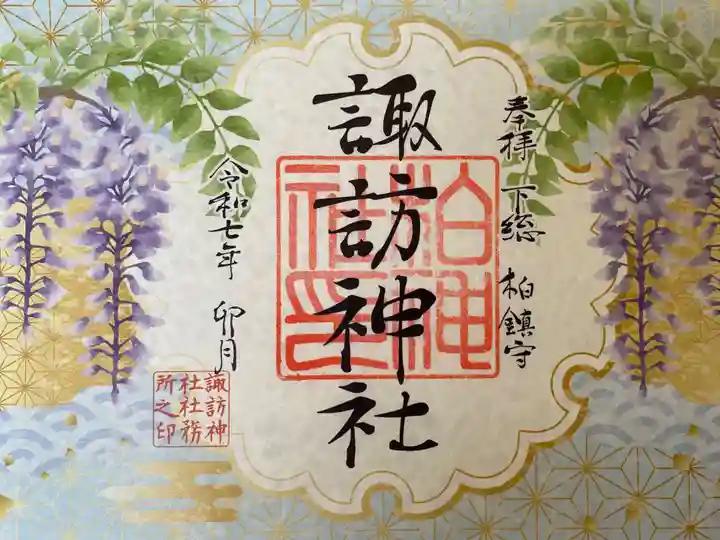 奉拝 下総 柏鎮守
諏訪神社
柏神
社印
令和七年 卯月
諏訪神
社社務
所之印